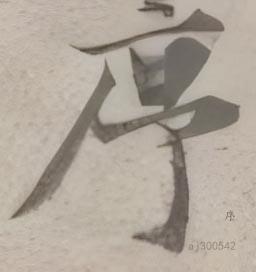 序
序
aj300542